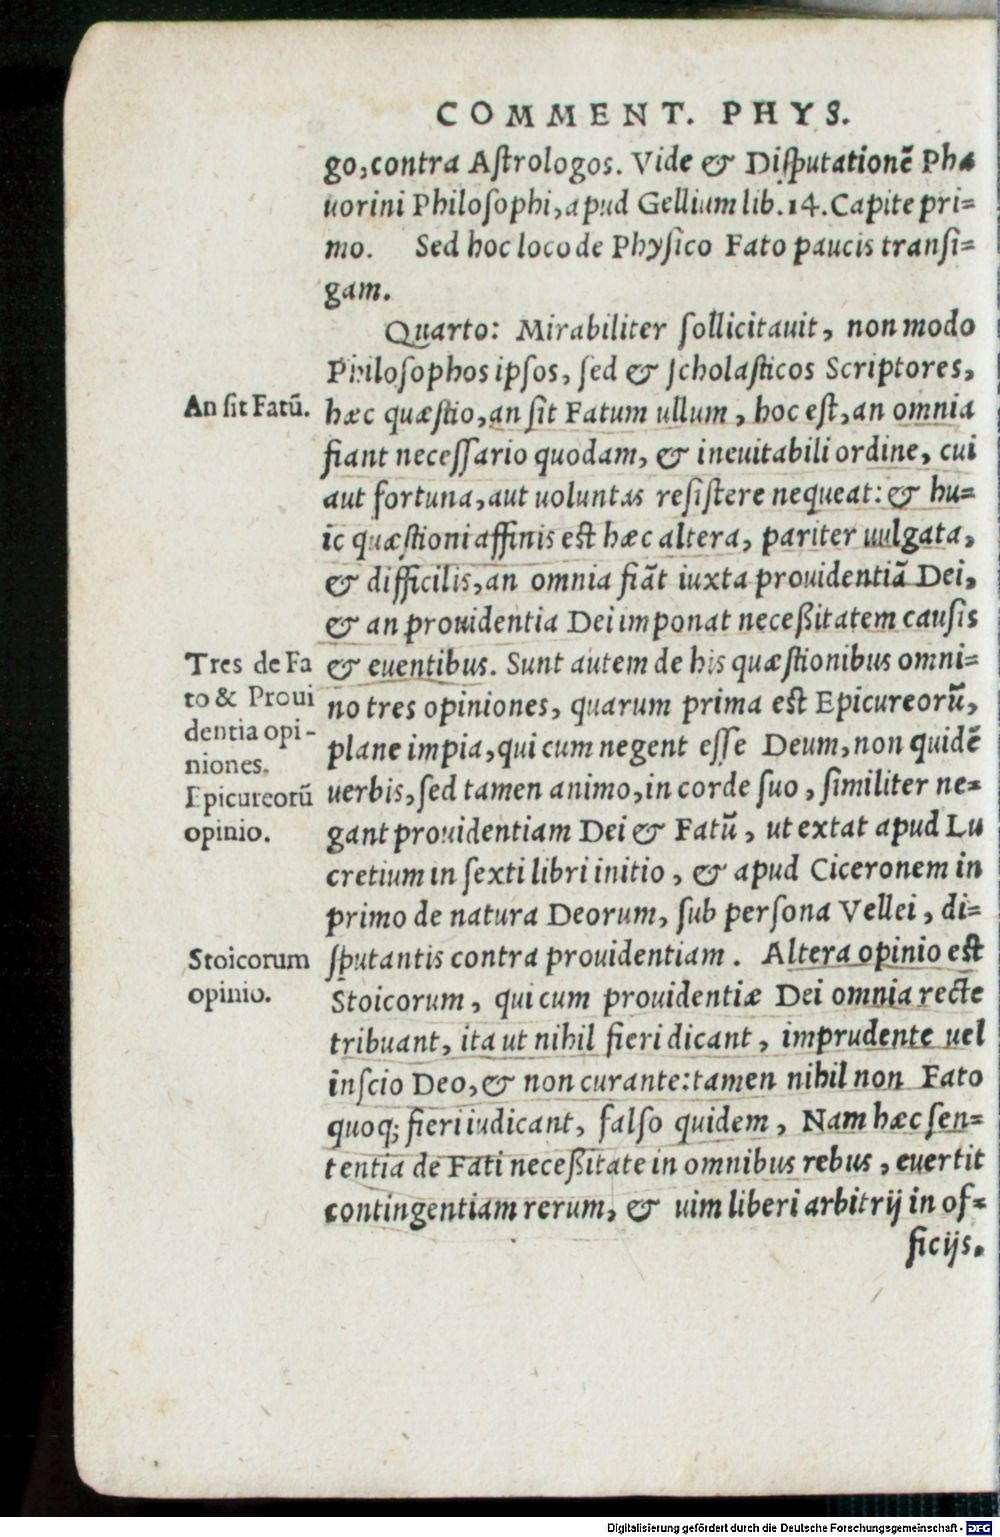 COMMENT. PHYS.
go, contra Aſtrologos. Vide & Diſputationẽ Pha
uorini Philoſophi, apud Gellium lib. 14. Capite pri=
mo. Sed hoc loco de Phyſico Fato paucis tranſi=
gam.
Quarto: Mirabiliter ſollicitauit, non modo
Philoſophos ipſos, ſed & ſcholaſticos Scriptores,
An ſit Fatũ.
hæc quæſtio, an ſit Fatum ullum, hoc eſt, an omnia
fiant neceſſario quodam, & ineuitabili ordine, cui
aut fortuna, aut uoluntas reſiſtere nequeat: & hu=
ic quæſtioni affinis eſt hæc altera, pariter uulgata,
& difficilis, an omnia fiãt iuxta prouidentiã Dei,
& an prouidentia Dei imponat neceßitatem cauſis
Tres de Fa
to & Proui
dentia opi-
niones.
Epicureorũ
opinio.
& euentibus. Sunt autem de his quæſtionibus omni=
no tres opiniones, quarum prima eſt Epicureorũ,
plane impia, qui cum negent eſſe Deum, non quidẽ
uerbis, ſed tamen animo, in corde ſuo, ſimiliter ne=
gant prouidentiam Dei & Fatũ, ut extat apud Lu
cretium in ſexti libri initio, & apud Ciceronem in
primo de natura Deorum, ſub perſona Vellei, di=
Stoicorum
opinio.
ſputantis contra prouidentiam. Altera opinio eſt
Stoicorum, qui cum prouidentiæ Dei omnia recte
tribuant, ita ut nihil fieri dicant, imprudente uel
inſcio Deo, & non curante: tamen nihil non Fato
quoq; fieri iudicant, falſo quidem, Nam hæc ſen=
tentia de Fati neceßitate in omnibus rebus, euertit
contingentiam rerum, & uim liberi arbitrij in of=
ficijs.
Digitalisierung gefördert durch die Deutsche Forschungsgemeinschaft - DFG